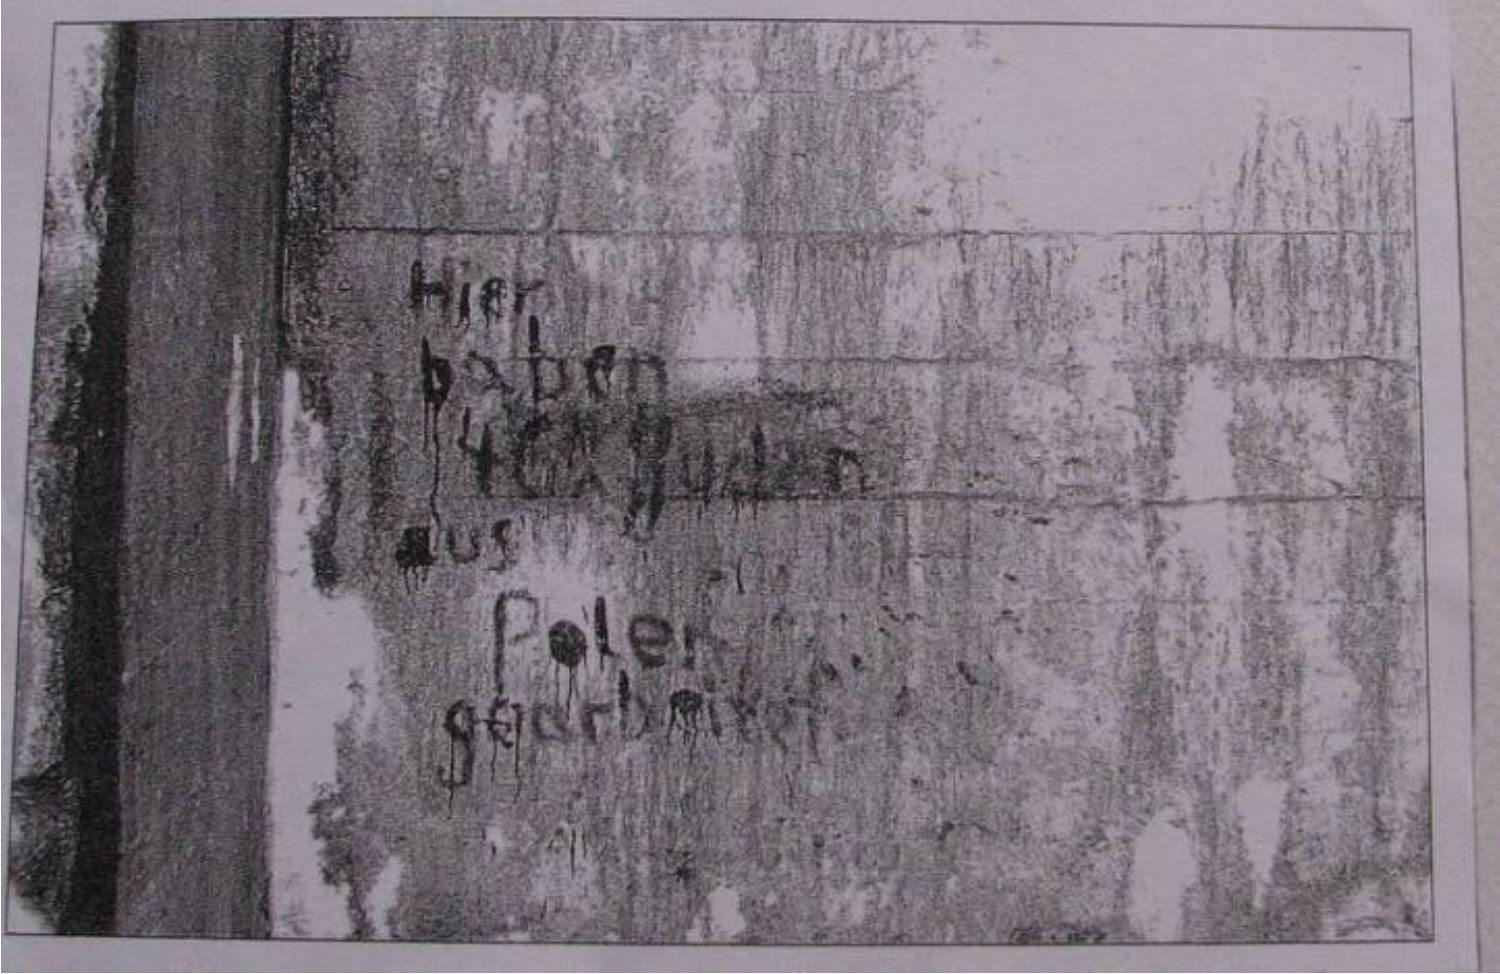 Hier
haben
40 Juden
aus
Polen
gearbeitet